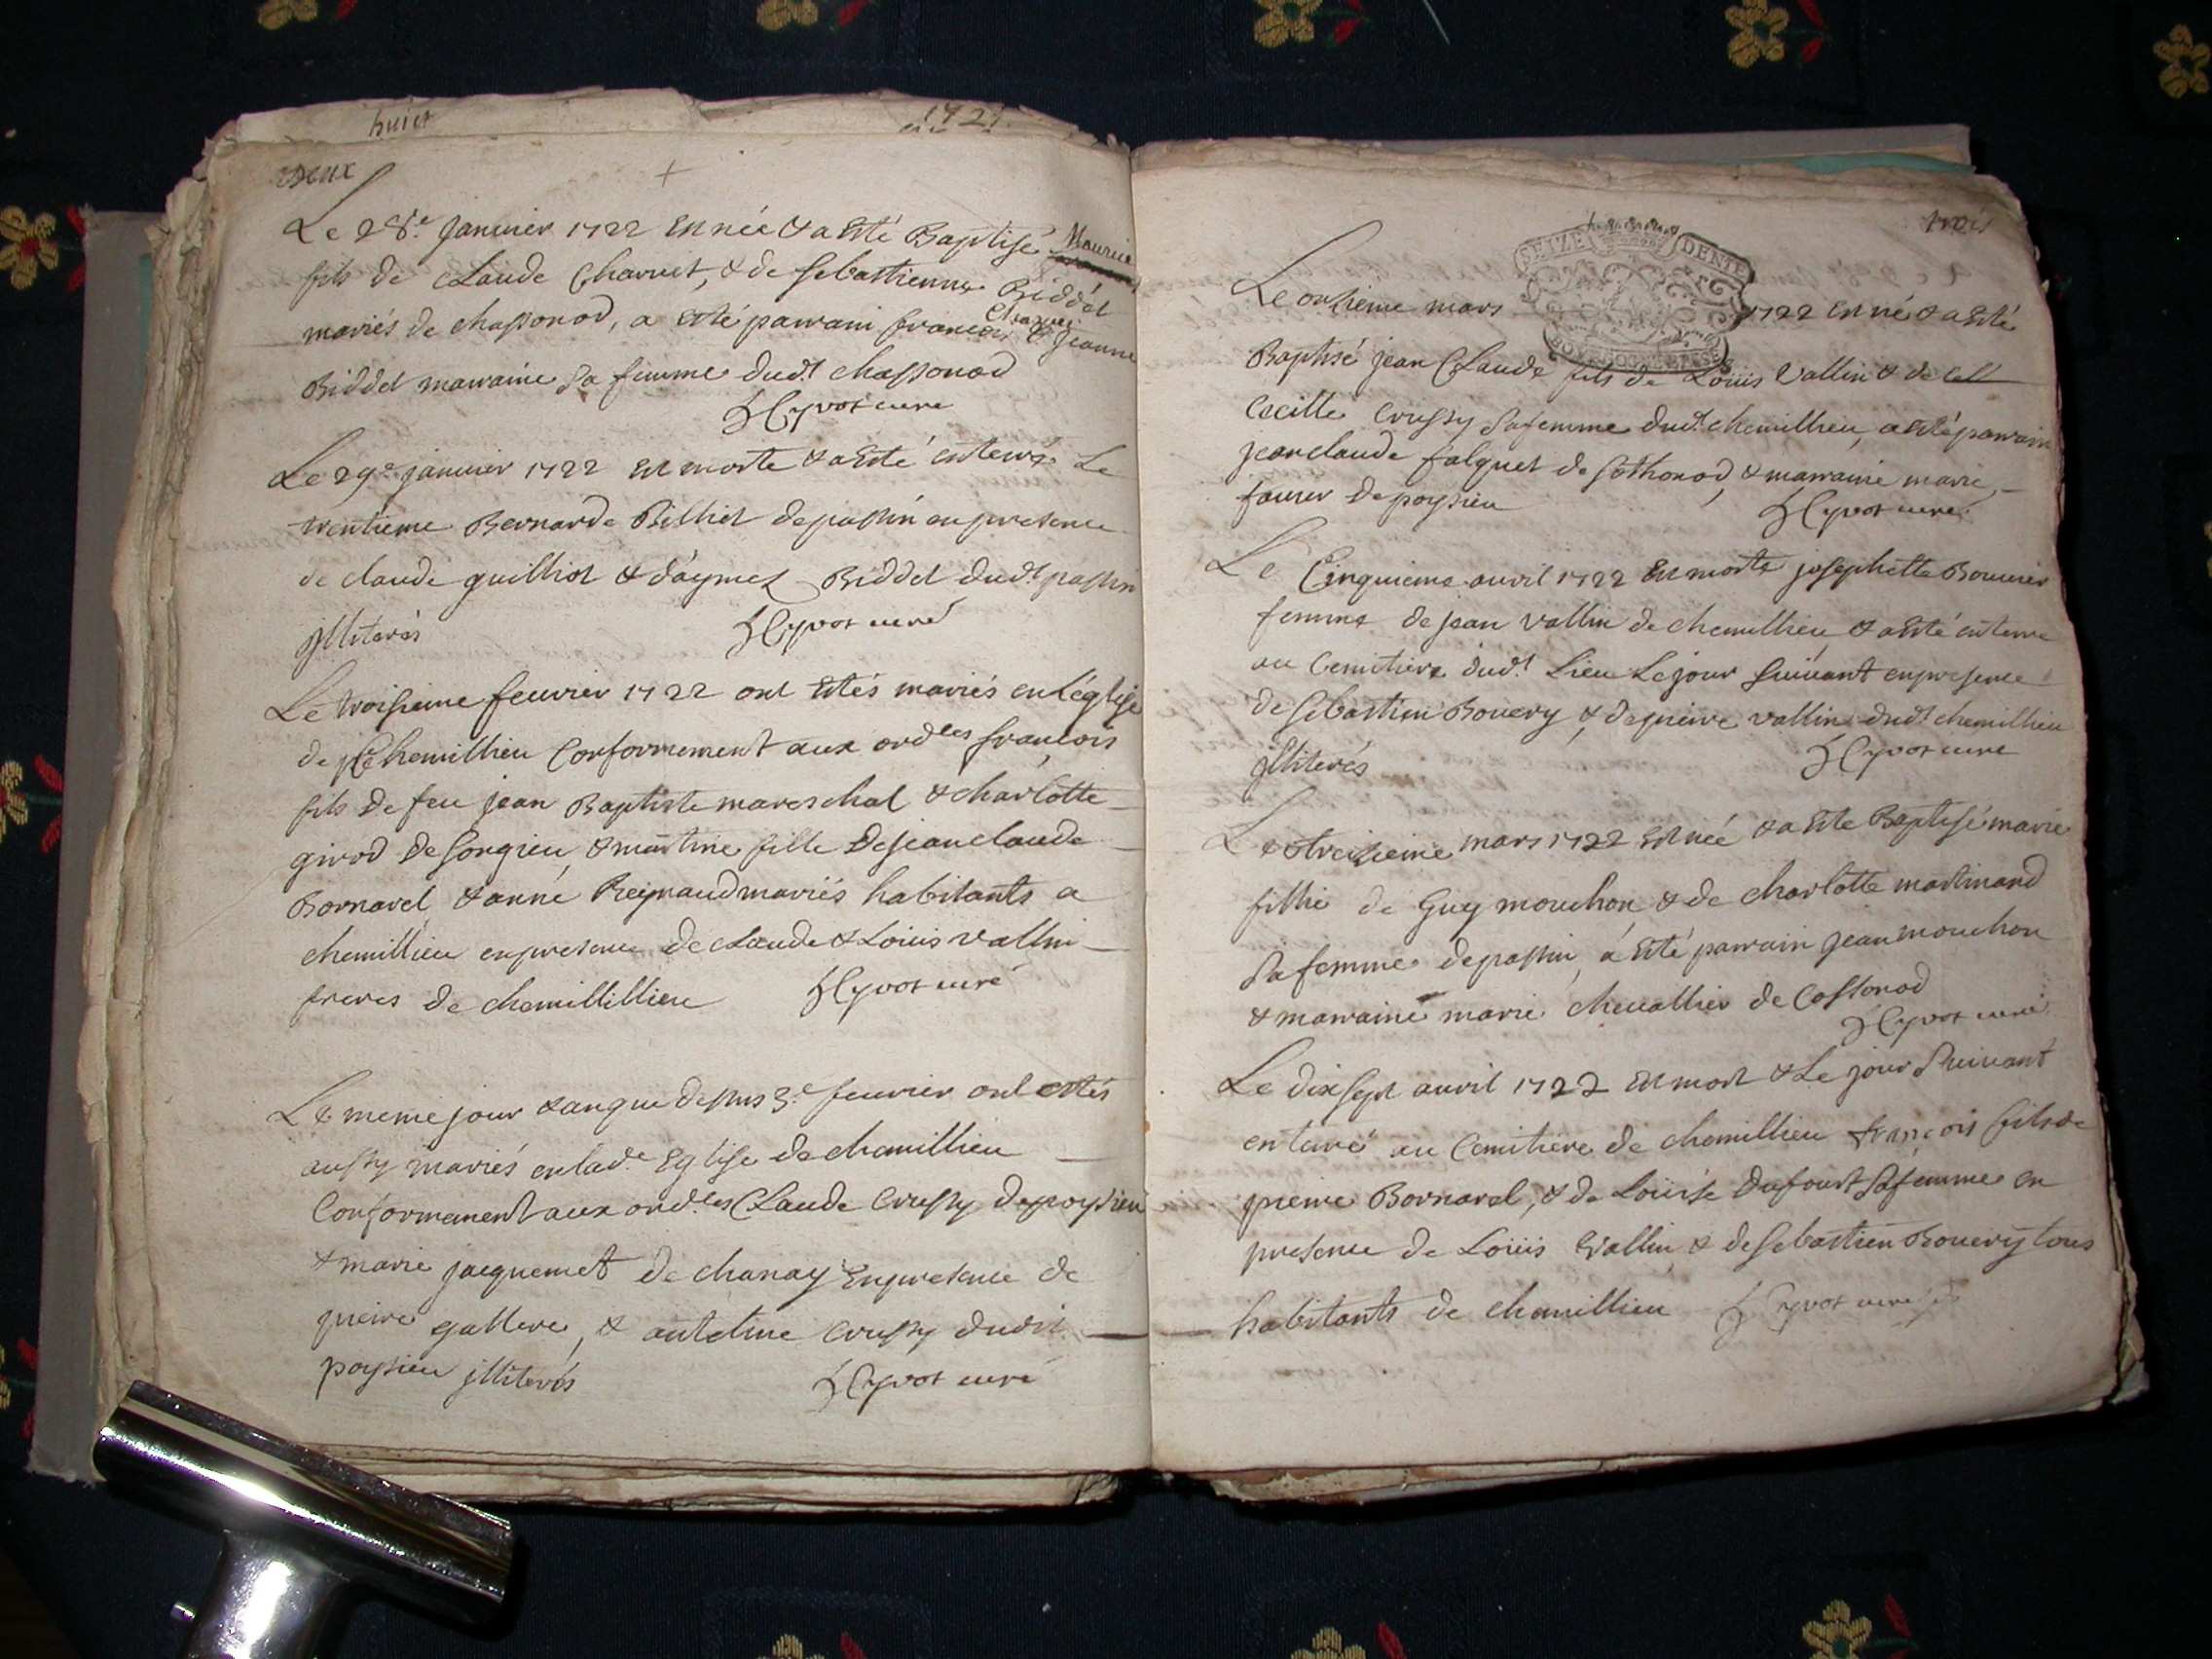 huict 1721.
deux
Le 28.e Janvier 1722 est née & a esté Baptisé Maurice
fils de Claude Charvet, & de Sebastienne Biddel
mariés de chassonod, a esté parrain francois Charvet & Jeanne
Biddel marraine sa femme dud.t chassonod
Hyvot curé
Le 29.e janvier 1722 est morte & a esté enterré Le
trentieme Bernarde Billiet de passin en presence
de claude guilliot & d'aymez Biddel dud.t passin
jlliterés Hyvot curé
Le troisieme feuvrier 1722 ont estés mariés en L'église
de Chemillieu Conformement aux ord.les francois
fils de feu jean Baptiste mareschal & charlotte
girod de Songieu & martine fille de jean claude
Bornarel & anne Reynaud mariés habitants a
chemillieu en presence de claude & Louis vallin
freres de chemillillieu Hyvot curé
Le meme jour & an que dessus 3.e feuvrier ont estés
aussy mariés en lad.e Eglise de chemillieu
Conformement aux ord.les Claude Crussy de poysieu
& marie jacquemet de chanay En presence de
pierre gallere, & antelme Crussy dudit
poysieu jlliterés Hyvot curé
trois
SEIZE DENIE
Le onzieme mars 1722 est né & a esté
Baptisé jean Claude fils de Louis Vallin & de Cell
Cecille Crussy sa femme dud.t chemillieu, a esté parrain
jean claude falquet de Sothonod, & marraine marie
fourer de poysieu Hyvot curé
Le Cinquieme auvril 1722 Est morte josephette Bouvier
femme de jean vallin de chemillieu & a esté enterre
au Cemitiere dud.t Lieu Le jour suivant en presence
de Sebastien Bouery & de pierre vallin dud.t chemillieu
jlliterés Hyvot curé
Le treizieme mars 1722 Est née & a esté Baptisé marie
fillie de Guy mouchon & de charlotte martinand
sa femme de passin, a esté parrain jean mouchon
& marraine marie chevallier de Cossonod
Hyvot curé
Le dix sept auvril 1722 Est mort & Le jour suivant
enterré au Cemitiere de chemillieu francois fils de
pierre Bornarel, & de Louise Dufour sa femme en
presence de Loüis Vallin & de Sebastien Bouery tous
habitants de chemillieu Hyvot curé